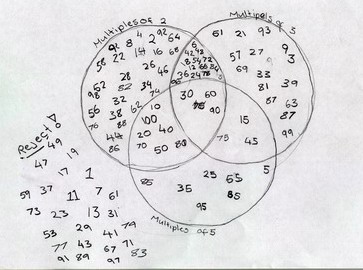 Multiples of 2
Multipels of 3
92 8 4 2 92 64
22 14 16 68
58 26 46
62 28
98 82 34
56 32 38
76 88
44 20 40
86 70 50 80
10
100
6
42 48
18 54 72
12 66 84
36 24 78
30 60
90
51 21 93
57 27 9 3
69 33
81 39
87 63
99
15
75 45
Reject!
49
47 19
17 1
59 37 11 7 61
73 23 13 31
53 29 41 79
77 43 67 71
91 89 97 83
85 25 65 5
35 55
95
Multiples of 5